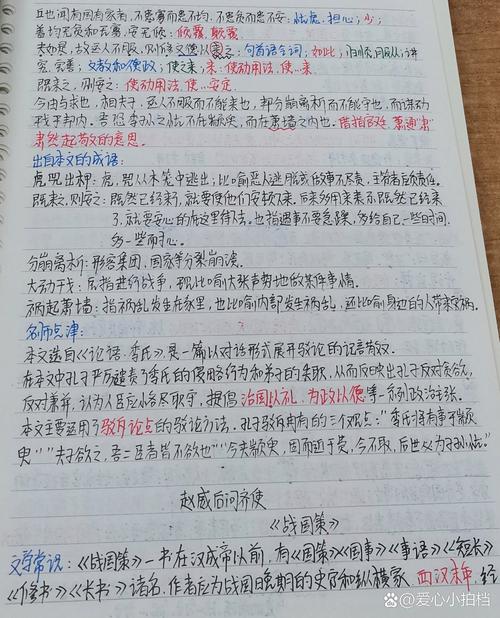 丘也闻有国有家者，不患寡而患不均，不患贫而患不安：忧虑，担心；少；
盖均无贫和无寡，安无倾：倾覆，颠覆
夫如是，故远人不服，则修文德以来之：句首语气词，如此；归顺，服从；讲
究，完善；文教和德政；使之来，来：使动用法，使…来
既来之，则安之：使动用法，使…安定
今由与求也，相夫子，远人不服而不能来也，邦分崩离析而不能守也，而谋动
干戈于邦内。吾恐季孙之忧不在颛臾，而在萧墙之内也。借指宫廷 萧通“肃”
肃然起敬的意思。
出自本文的成语：
虎兕出柙：虎，兕从木笼中逃出；比喻恶人逃脱或做事不尽责，主管者应负责任。
既来之，则安之：既然已经来了，就要使他们安顿下来。后来多用来表示既然已经来
了，就要安心的在这里待下去。也指遇事不要急躁，多给自己一些时间，
多一些耐心。
分崩离析：形容集团，国家等分裂崩溃。
大动干戈：原指进行战争，现比喻大张声势地做某件事情。
祸起萧墙：指祸乱发生在家里，也比喻内部发生祸乱，还比喻身边的人带来灾祸。
名师点津：
本文选自《论语·季氏》，是一篇以对话形式展开驳论的记言散文。
在本文中孔子严厉谴责了季氏的侵略行为和弟子的失职，从而反映出孔子反对贪欲，
反对兼并，认为人臣应当尽职守，提倡治国以礼，为政以德等一系列政治主张。
本文主要运用了驳斥论点的驳论方法。孔子驳斥冉有的三个观点：“季氏将有事于颛
臾”“夫子欲之，吾二臣者皆不欲也”“今夫颛臾，固而近于费，今不取，后世必为子孙忧。”
赵威后问齐使
《战国策》
文学常识：《战国策》一书在汉成帝以前，有《国策》《国事》《事语》《短长》
《修书》《长书》诸名，作者应为战国晚期的史官和纵横家，西汉末年，经
@爱心小拍档